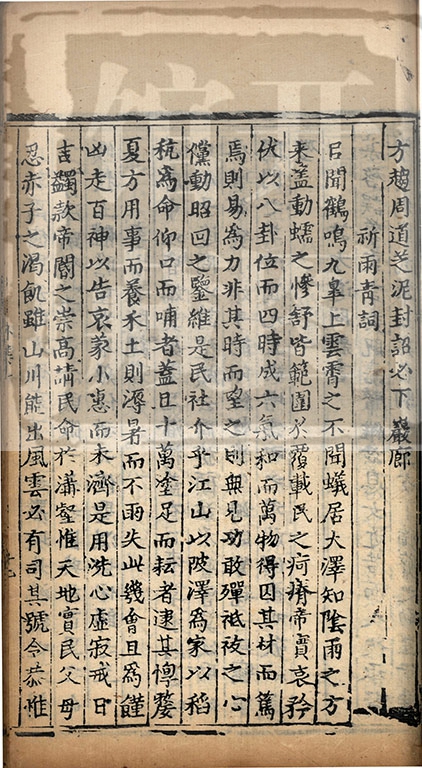 方趨周道芝泥封詔必下巖廊
祈雨青詞
臣聞鶴鳴九臯上雲霄之不聞蟻居大澤知陰雨之方
来盖動蠕之慘舒皆範圍扵覆載民之疴癢帝實哀矜
伏以八卦位而四時成六氣和而萬物得因其材而篤
焉則易為力非其時而望之則無見功敢殫祗祓之心
儻動昭回之鑒維是民社介乎江山以陂澤為家以稻
秔為命仰口而哺者盖日十萬塗足而耘者逮其
夏方用事而養禾土則溽暑而不雨失此幾會且為饉
凶走百神以告哀蒙小惠而未濟是用洗心虛寂戒日
吉蠲款帝閽之崇高請民命於溝壑惟天地實民父母
忍赤子之渴飢雖山川能出風雲必有司其號令恭惟